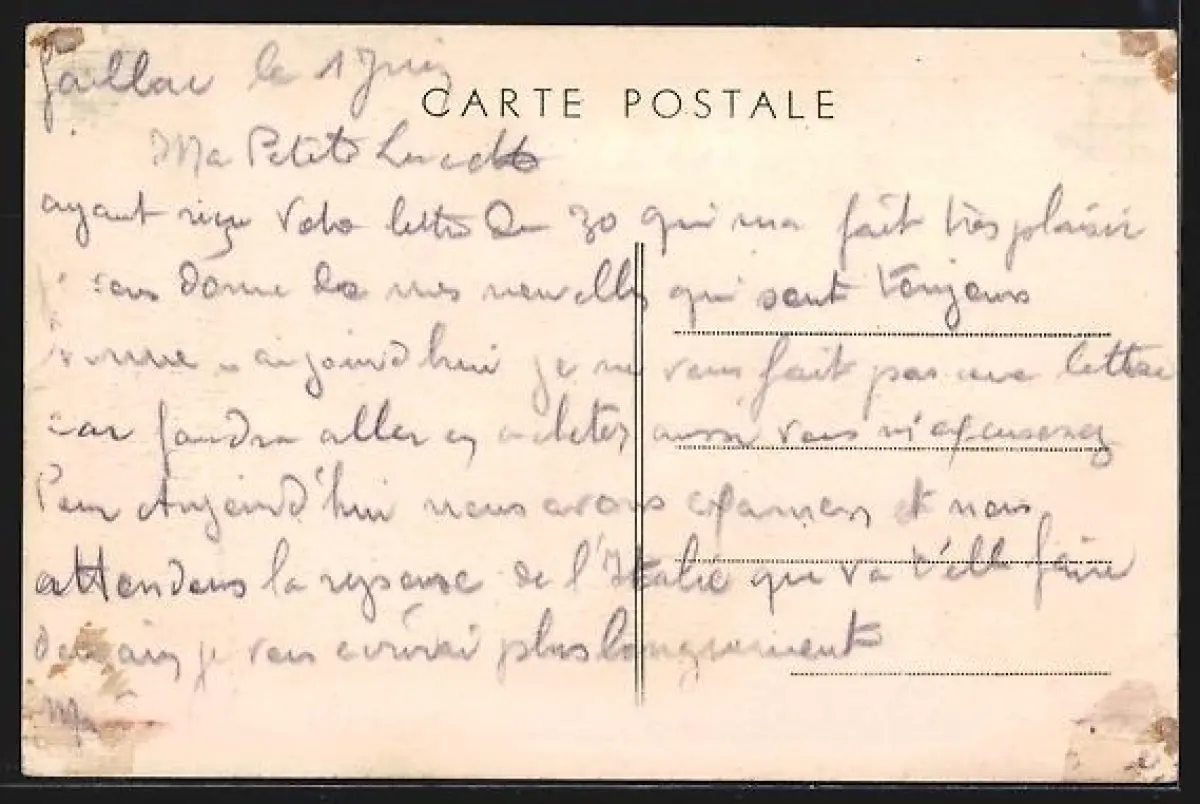 Gaillac le 1 Juin
CARTE POSTALE
Ma Petite
ayant reçu Votre lettre Du 30 qui ma fait très plaisir
vous donne De mes nouvelles qui sont toujours
bonne aujourd'hui je ne vous fait pas une lettre
car faudra aller en acheter aussi vous m'excuserez
Pour Aujourd'hui nous avons examen et nous
attendons la reponse de l'Italie que va t'elle faire
demain je vous ecrirai plus longuement